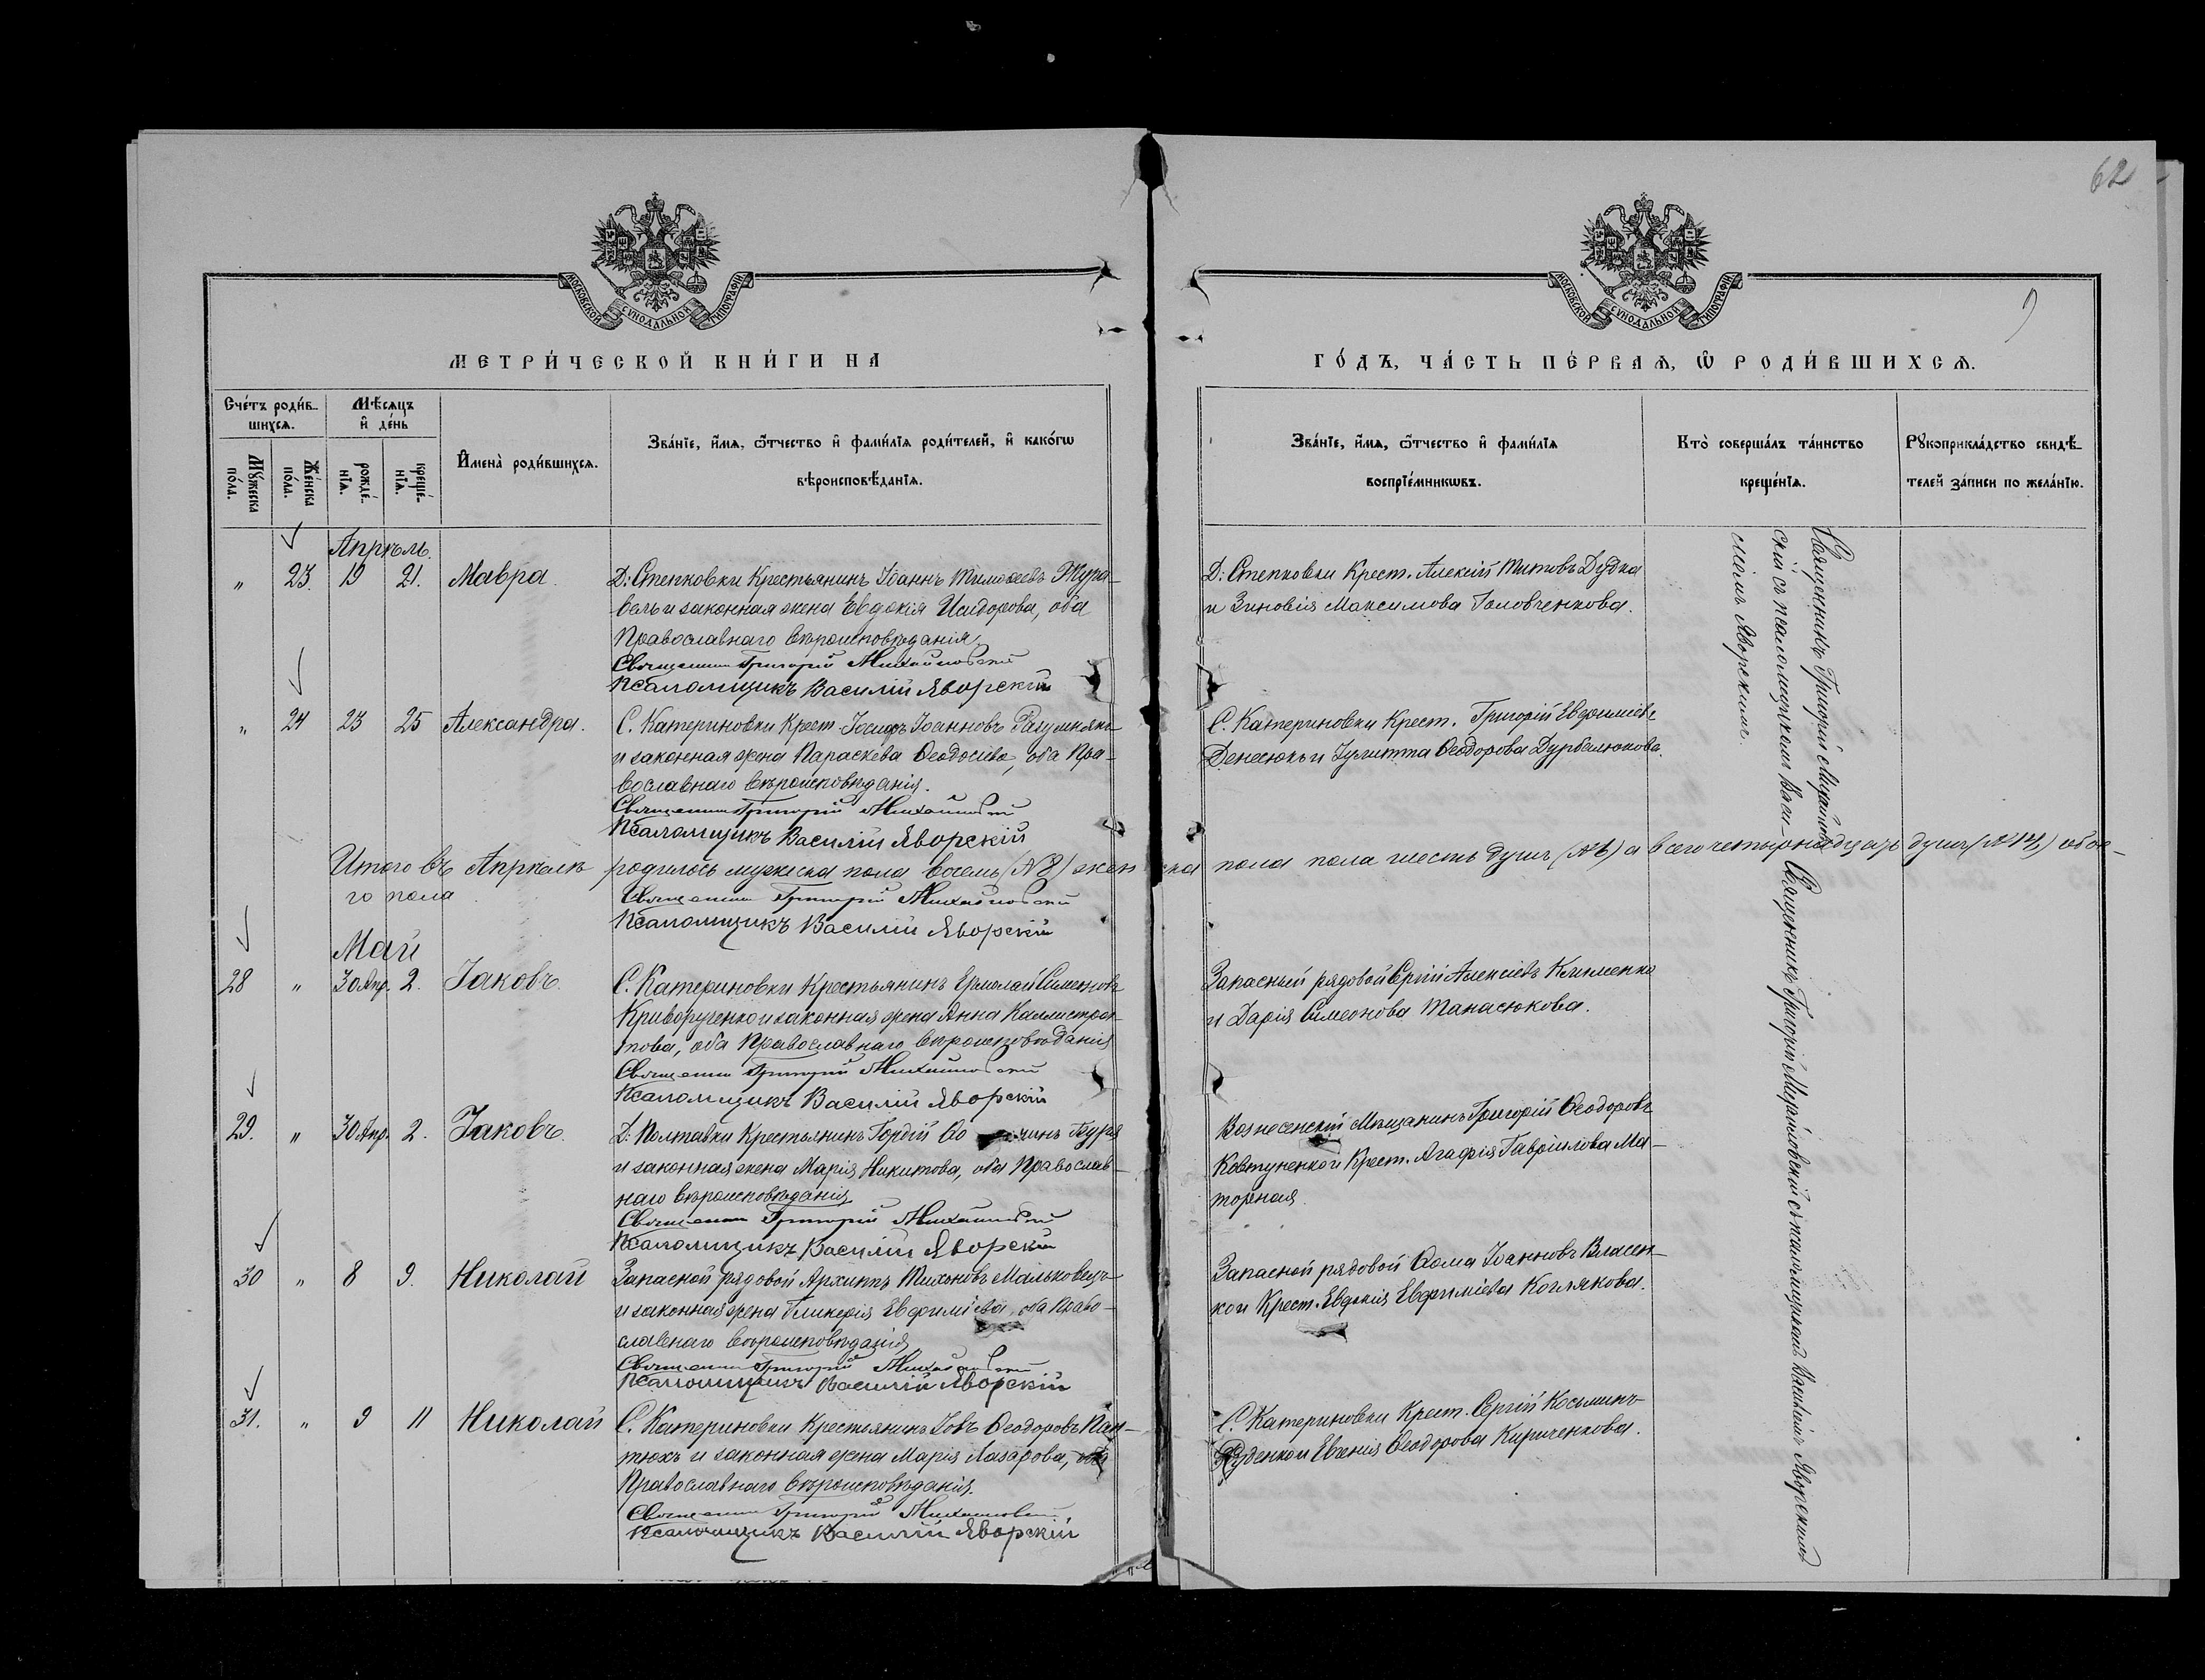 62
МОСКОВСКОЙ СУНОДАЛЬНОЙ ТИПОГРАФІИ
МОСКОВСКОЙ СУНОДАЛЬНОЙ ТИПОГРАФІИ
МЕТРИ́ЧЕСКОЙ КНИ́ГИ НА
ГО́ДЪ, ЧА́СТЬ ПЕ́РВАЯ, Ѡ РОДИ́ВШИХСЯ.
Сче́тъ роди́в-
шихся.
Мѣсяцъ
и де́нь
Му́жеска
по́ла.
Же́нска
по́ла.
рожде́-
нїя.
креще́-
нїя.
Имена̀ роди́вшихся.
Зва́нїе, и́мя, ѻ́тчество и фами́лїя роди́телей, и како́гѡ
вѣроисповѣ́данїя.
Зва́нїе, и́мя, ѻ́тчество и фами́лїя
воспрїе́мникѡвъ.
Кто̀ соверша́лъ та́инство
креще́нїя.
Рꙋкоприкла́дство свидѣ́-
телей за́писи по жела́нїю.
Апрѣль.
„ 23. 19 21. Мавра.
Д: Степковки Крестьянинъ Іоаннъ Тимоѳеевъ Жура-
вель и законная жена Евдокія Исидорова, оба
Православнаго вѣроисповѣданія.
Священникъ Григорій Михайловскій
Псаломщикъ Василій Яворскій
Д: Степковки Крест. Алексій Титовъ Дудка
и Зиновія Максимова Головченкова.
Священникъ Григорій Михайлов-
скій съ псаломщикомъ Васи-
ліемъ Яворскимъ.
„ 24 23 25 Александра.
С. Катериновки Крест. Іосифъ Іоанновъ
и законная жена Параскева Ѳеодосіева, оба Пра-
вославнаго вѣроисповѣданія.
Священникъ Григорій Михайловскій
Псаломщикъ Василій Яворскій
С. Катериновки Крест. Григорій Евфиміевъ
Денесюкъ и Іулитта Ѳеодорова Дурбалюкова.
Итого въ Апрѣлѣ родилось мужеска пола восемь (№ 8) женска пола пола шесть душъ (№ 6) а всего четырнадцать душъ (№ 14) обое-
го пола
Священникъ Григорій Михайловскій
Псаломщикъ Василій Яворскій
Май
28 „ 30 Апр. 2. Іаковъ.
С. Катериновки Крестьянинъ Ермолай Симеоновъ
Криворученко и законная жена Анна Каллистра-
това, оба Православнаго вѣроисповѣданія
Священникъ Григорій Михайловскій
Псаломщикъ Василій Яворскій
Запасный рядовой Сергій Алексіевъ Клименко
и Дарія Симеонова Танасюкова.
Священникъ Григорій Михайловскій съ псаломщикомъ Василіемъ Яворскимъ
29. „ 30 Апр. 2. Іаковъ.
Д: Полтавки Крестьянинъ Гордій Ѳо минъ Буря
и законная жена Марія Никитова, оба Православ-
наго вѣроисповѣданія
Священникъ Григорій Михайловскій
Псаломщикъ Василій Яворскій
Вознесенскій Мѣщанинъ Григорій Ѳеодоровъ
Ковтуненко и Крест. Агафія Гавріилова Ма-
торная.
30 „ 8 9. Николай
Запасной рядовой Архиппъ Тихоновъ Мальковецъ
и законная жена Гликерія Евфиміева, оба Право-
славнаго вѣроисповѣданія
Священникъ Григорій Михайловскій
Псаломщикъ Василій Яворскій
Запасной рядовой Ѳома Іоанновъ Власен-
ко и Крест. Евдокія Евфиміева Коглякова.
31. „ 9 11 Николай
С. Катериновки Крестьянинъ Іовъ Ѳеодоровъ Пан-
тюхъ и законная жена Марія Лазарова, оба
Православнаго вѣроисповѣданія.
Священникъ Григорій Михайловскій
Псаломщикъ Василій Яворскій
С. Катериновки Крест. Сергій Косьминъ
Руденко и Евгенія Ѳеодорова Кириченкова.